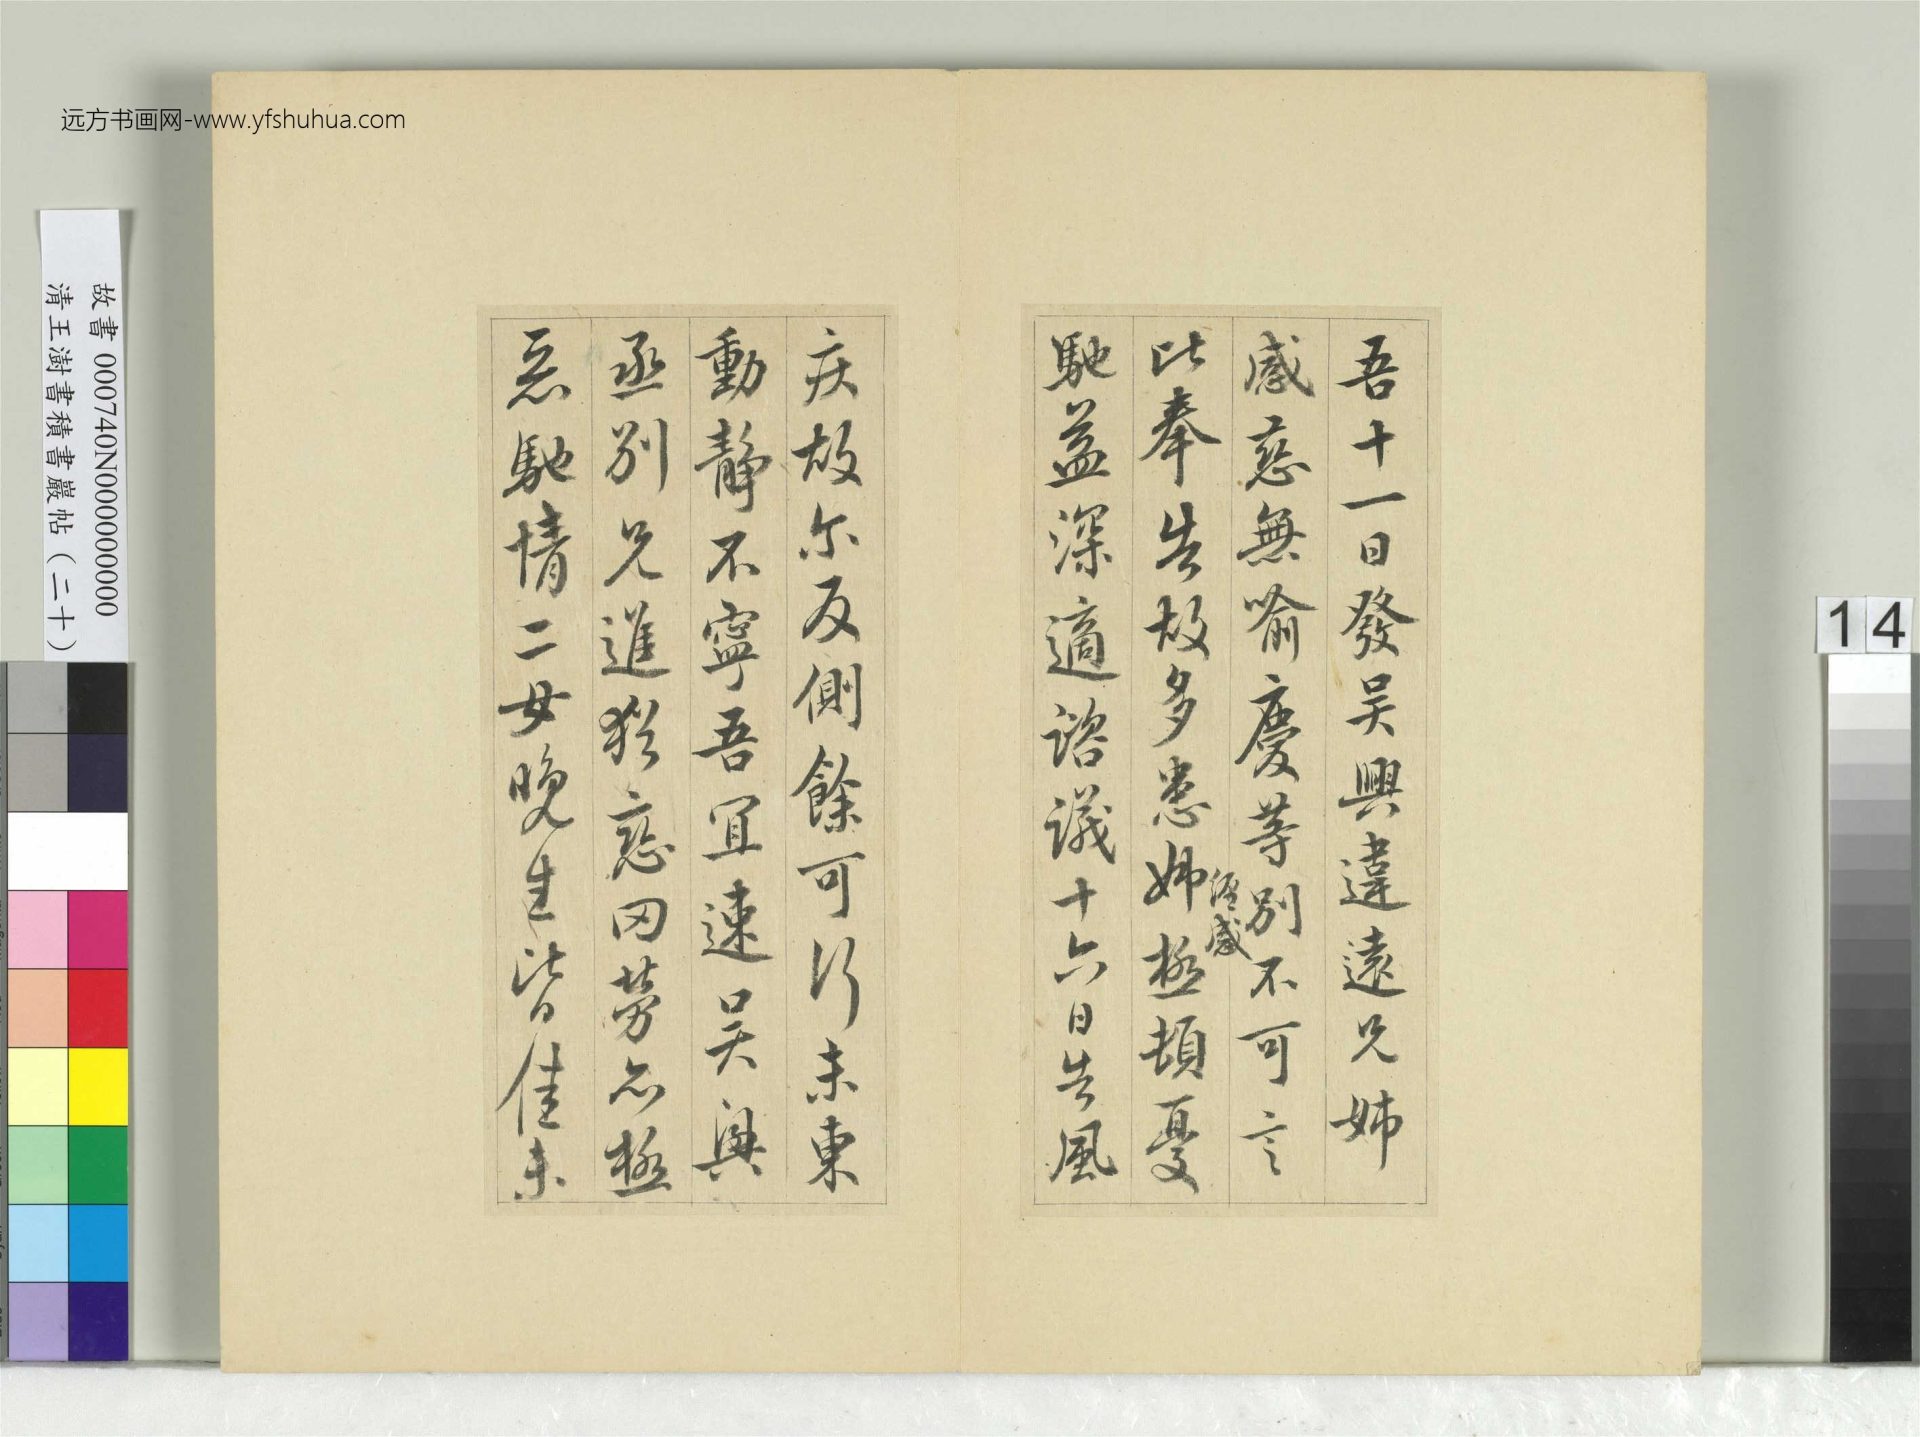 远方书画网-www.yfshuhua.com
故書 000740N000000000
清王澍書積書巖帖（二十）
14
吾十一日發吴興違遠兄姊
感慈無喻慶等別不可言
經感
比奉告故多患姊極頓憂
馳益深適諮議十六日告風
疾故尔反側餘可行未東
動静不寧吾宜速吴興
丞別兄進猶慈罔勞亦極
惡馳情二女晚生皆佳未